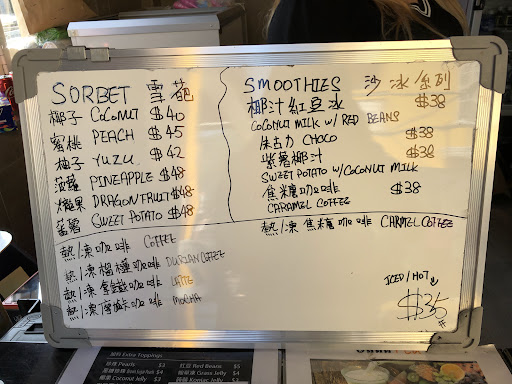 SORBET 雪葩
椰子 COCONUT $40
蜜桃 PEACH $45
柚子 YUZU $42
菠蘿 PINEAPPLE $48
火龍果 DRAGONFRUIT $48
蕃薯 SWEET POTATO $48
SMOOTHIES 沙冰系列
椰汁紅豆冰 $38
COCONUT MILK W/ RED BEANS
朱古力 CHOCO $38
紫薯椰汁 $38
SWEET POTATO W/COCONUT MILK
焦糖咖啡 $38
CARAMEL COFFEE
熱/凍咖啡 COFFEE
熱/凍榴槤咖啡 DURIAN COFFEE
熱/凍拿鐵咖啡 LATTE
熱/凍摩卡咖啡 MOCHA
熱/凍焦糖咖啡 CARMEL COFFEE
ICED/HOT
$35
配料 Extra Toppings
珍珠 Pearls $3
Coconut Jelly $3
紅豆 Red Beans $5
Grass Jelly $4
Konjac Jelly $3